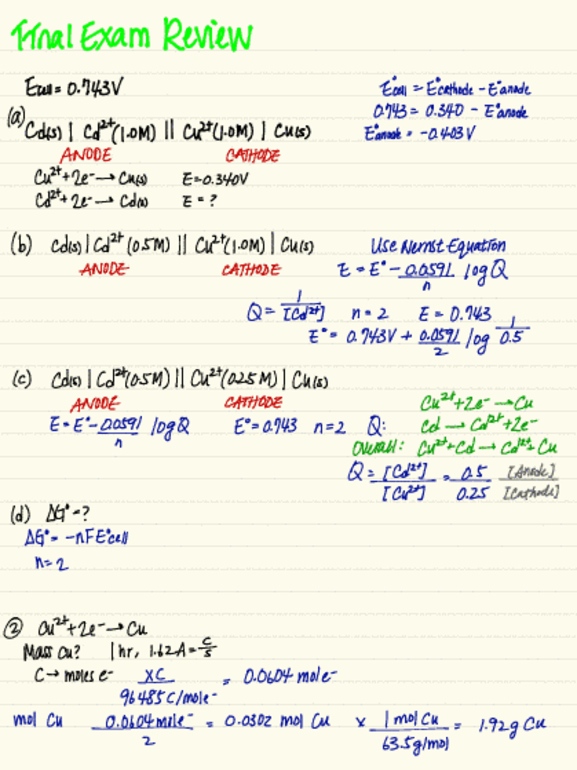 Final Exam Review
Ecell = 0.743V
E°cell = E°cathode - E°anode
0.743 = 0.340 - E°anode
E°anode = -0.403V
(a) Cd(s) | Cd²⁺(1.0M) || Cu²⁺(1.0M) | Cu(s)
ANODE CATHODE
Cu²⁺+2e⁻ → Cu(s) E=0.340V
Cd²⁺+2e⁻ → Cd(s) E = ?
(b) Cd(s) | Cd²⁺ (0.5M) || Cu²⁺(1.0M) | Cu(s)
ANODE CATHODE
Use Nernst Equation
E = E° - 0.0591/n log Q
Q = 1/[Cd²⁺] n=2 E = 0.743
E° = 0.743V + 0.0591/2 log 1/0.5
(c) Cd(s) | Cd²⁺(0.5M) || Cu²⁺(0.25M) | Cu(s)
ANODE CATHODE
E = E° - 0.0591/n log Q E° = 0.743 n=2 Q:
Cu²⁺+2e⁻ → Cu
Cd → Cd²⁺+2e⁻
Overall: Cu²⁺+Cd → Cd²⁺+Cu
Q = [Cd²⁺]/[Cu²⁺] = 0.5/0.25 [Anode]/[Cathode]
(d) ΔG° = ?
ΔG° = -nFE°cell
n=2
② Cu²⁺+2e⁻ → Cu
Mass Cu? 1hr, 1.62A = C/s
C → moles e⁻ XC/96485 C/mole⁻ = 0.0604 mole⁻
mol Cu 0.0604 mole⁻/2 = 0.0302 mol Cu x 1 mol Cu/63.5g/mol = 1.92g Cu